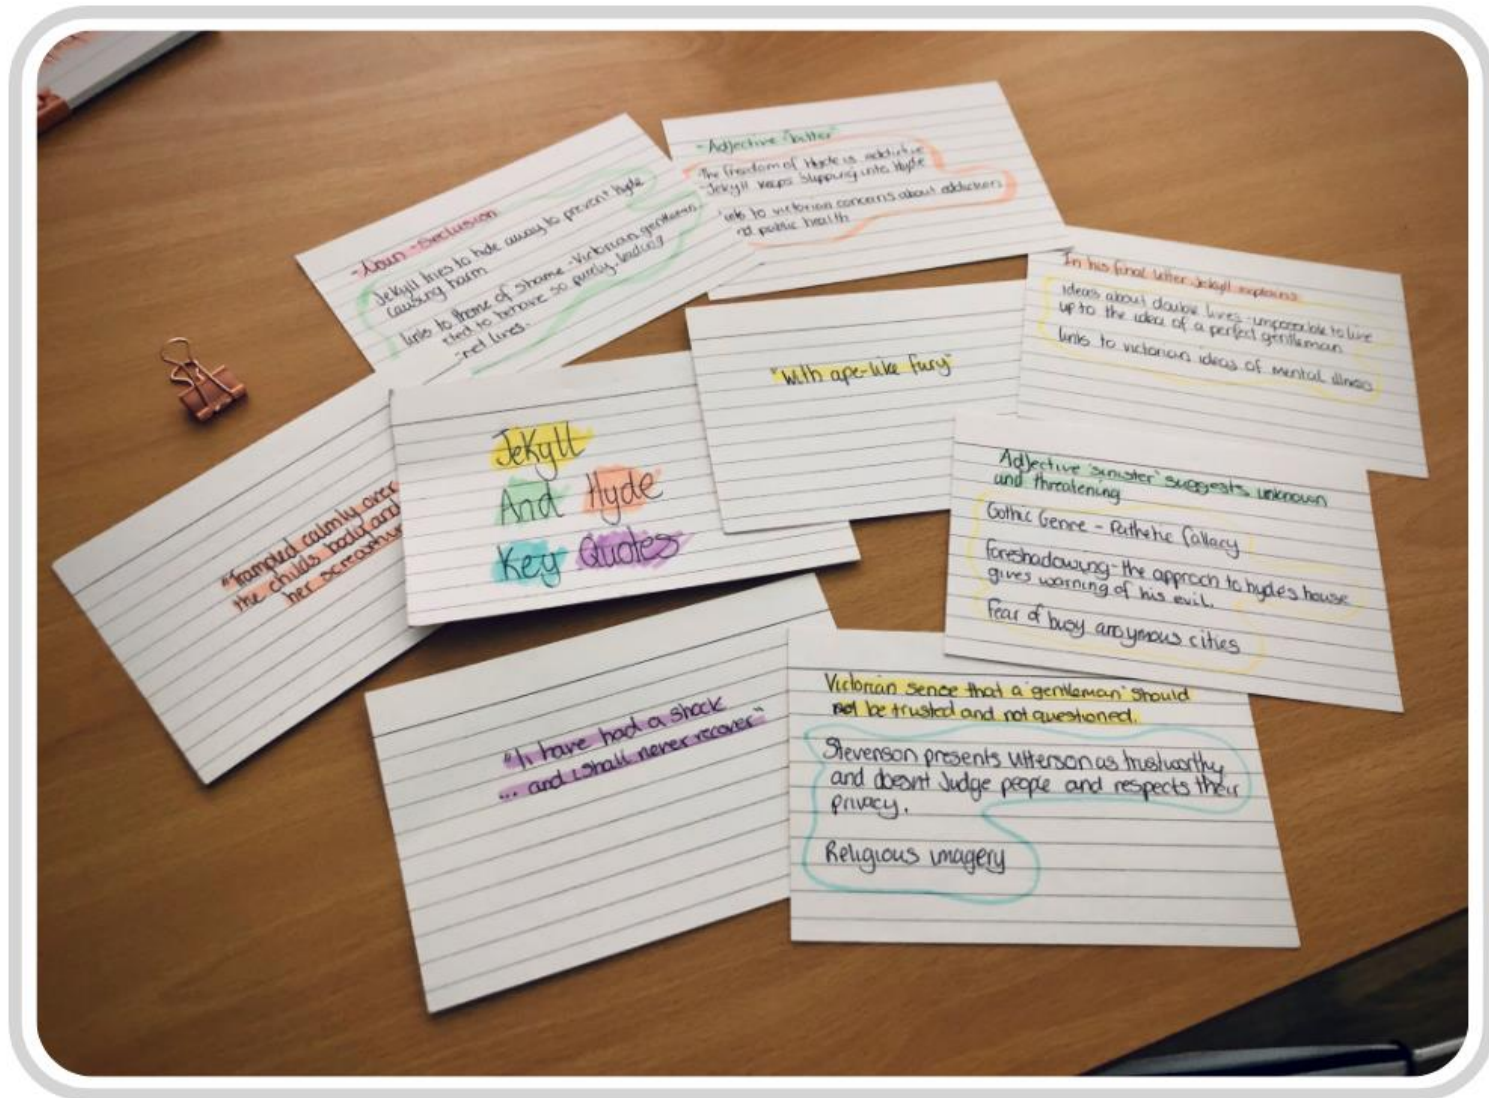 -Noun -Seclusion
Jekyll tries to hide away to prevent hyde
causing harm
links to theme of shame -Victorian gentleman
cted to behave so purely-leading
cret lives.
-Adjective-"bitter"
The freedom of Hyde is addictive
-Jekyll keeps slipping into Hyde
inks to victorian concerns about addiction
nd public health
In his final letter Jekyll explains
ideas about double lives-impossible to live
up to the idea of a perfect gentleman
links to victorian ideas of mental illness
"with ape-like fury"
Jekyll
And Hyde
Key Quotes
"Trampled calmly over
the childs body and
her screaming
Adjective 'sinister' suggests unknown
and threatening
Gothic Genre - Pathetic fallacy
foreshadowing-the approch to hydes house
gives warning of his evil.
fear of busy anoymous cities
"I have had a shock
... and i shall never recover"
Victorian sense that a 'gentleman' should
be trusted and not questioned.
Stevenson presents Utterson as trustworthy
and doesnt Judge people and respects their
privacy.
Religious imagery